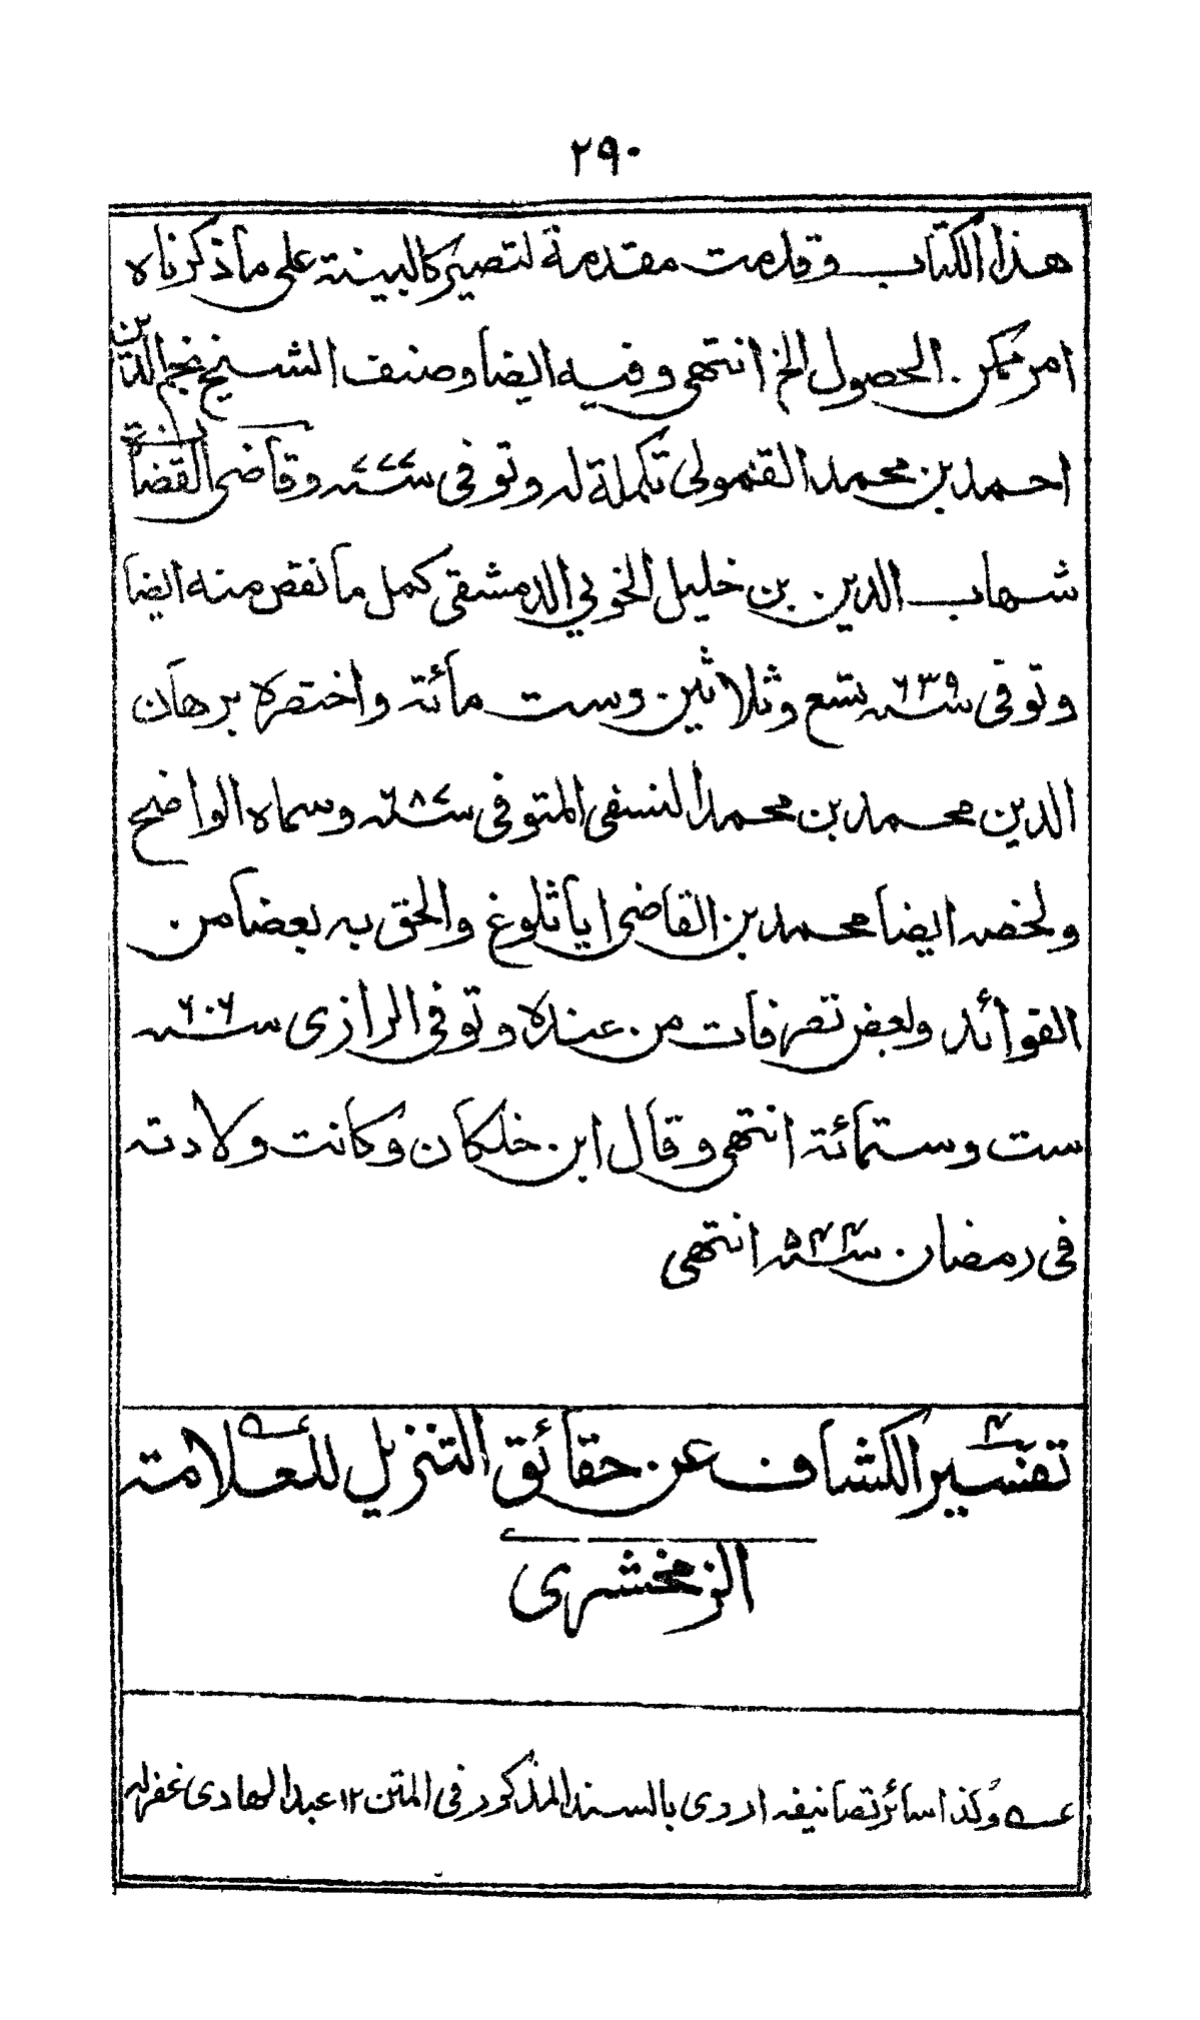 ٢٩٠
هذا الكتاب وقدمت مقدمة لتصير كالبينة على ما ذكرناه
امر ممكن الحصول الخ انتهى وفيه ايضا وصنف الشيخ نجم الدين
احمد بن محمد القمولى تكملة له وتوفى سنة ٧٧٧ وقاضى القضاة
شهاب الدين بن خليل الخوبي الدمشقى كمل ما نقص منه ايضا
وتوفى سنة ٦٣٩ تسع وثلاثين وست مائة واختصره برهان
الدين محمد بن محمد النسفى المتوفى سنة ٦٨٧ وسماه الواضح
ولخصه ايضا محمد بن القاضى اياثلوغ والحق به بعضا من
الفوائد وبعض تصرفات من عنده وتوفى الرازى سنة ٦٠٦
ست وستمائة انتهى وقال ابن خلكان وكانت ولادته
فى رمضان سنة ٥٤٤ انتهى
تفسير الكشاف عن حقائق التنزيل للعلامة
الزمخشرى
عه وكذا سائر تصانيفه اروى بالسند المذكور فى المتن ١٢ عبد الهادى غفر له